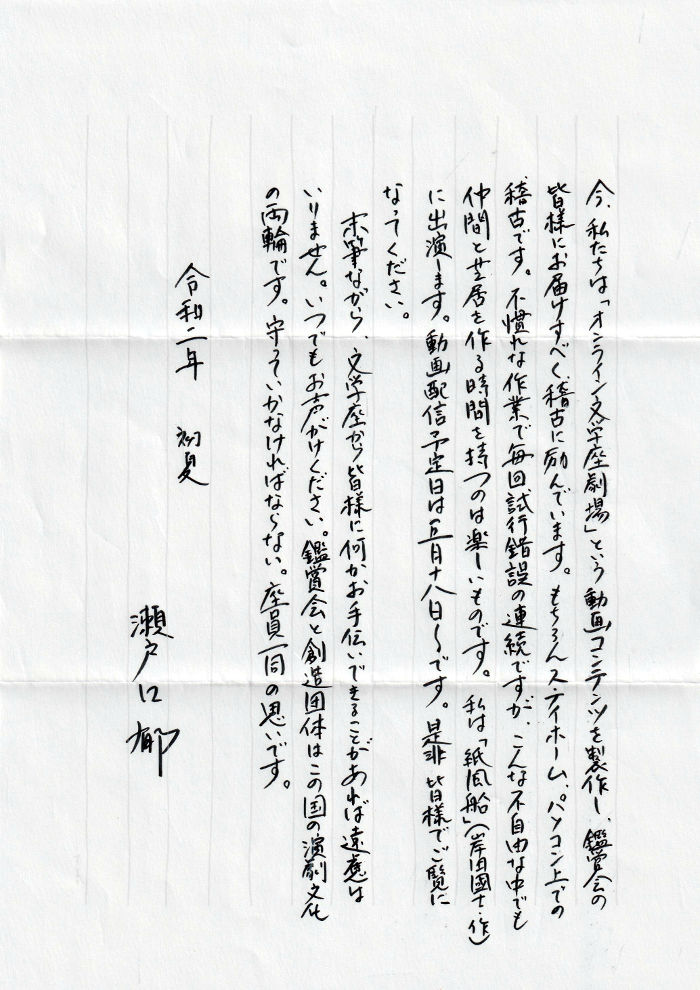 今、私たちは「オンライン文学座劇場」という動画コンテンツを製作し、鑑賞会の
皆様にお届けすべく稽古に励んでいます。もちろんステイホーム、パソコン上での
稽古です。不慣れな作業で毎回試行錯誤の連続ですが、こんな不自由な中でも
仲間と芝居を作る時間を持つのは楽しいものです。私は「紙風船」(岸田國士・作)
に出演します。動画配信予定日は五月十八日〜です。是非皆様でご覧に
なってください。
末筆ながら、文学座から皆様に何かお手伝いできることがあれば遠慮は
いりません。いつでもお声がけください。鑑賞会と創造団体はこの国の演劇文化
の両輪です。守っていかなければならない。座員一同の思いです。
令和二年 初夏
瀬戸口郁